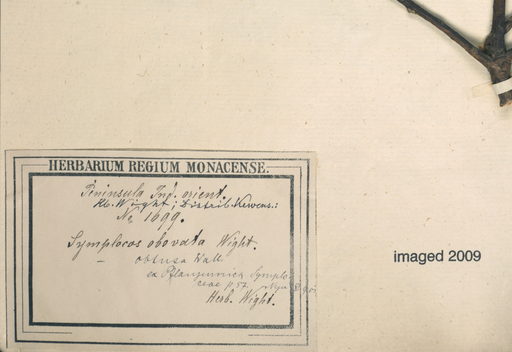 HERBARIUM REGIUM MONACENSE.
Peninsula Ind. orient.
Hb. Wight; Distrib. Kewens.:
No 1699.
Symplocos obovata Wight.
— obtusa Wall.
ex Pflanzenreich Symplo-
ceae p. 52.
Herb. Wight.
imaged 2009